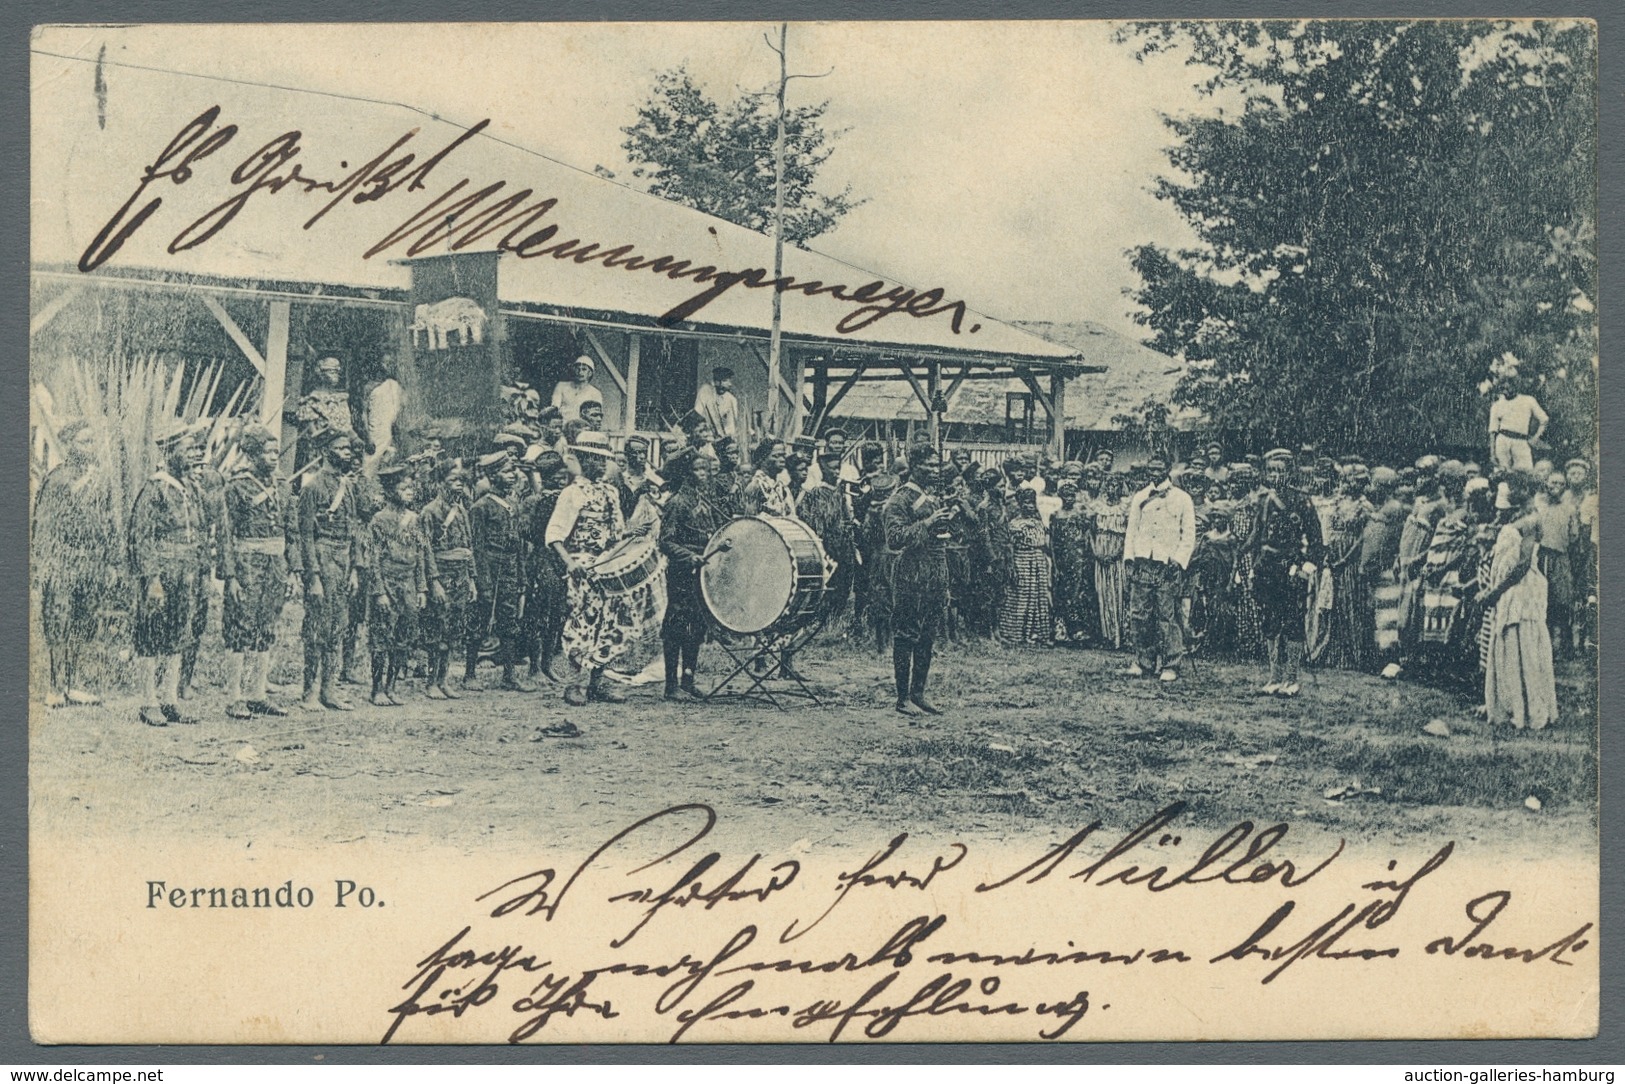 Es Grüßt
Menningmeyer.
Fernando Po.
Wehrter Herr Müller ich
sage nochmals meinen besten Dank
für Ihre Empfehlung.
www.delcampe.net
auction-galleries-hamburg